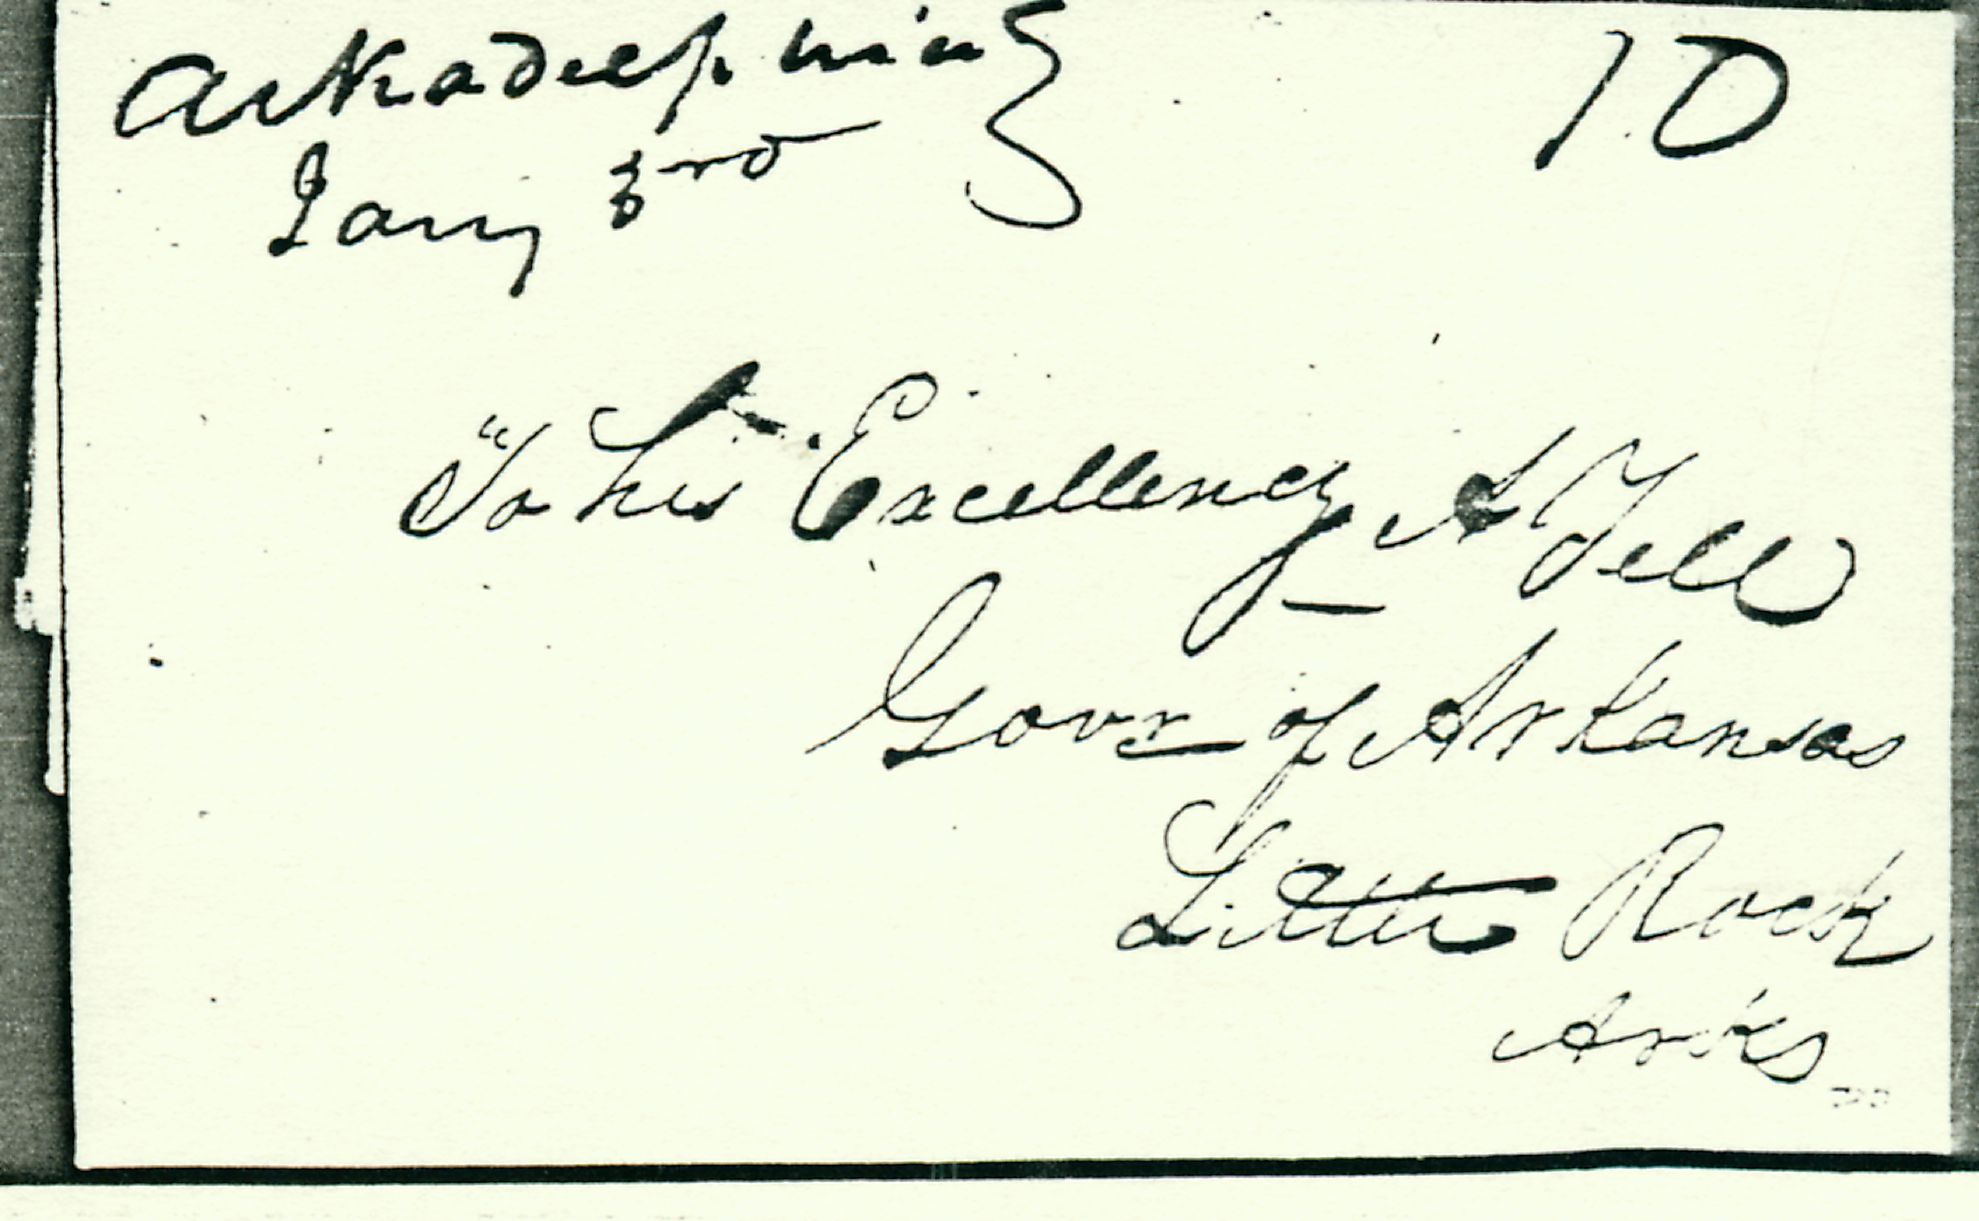 Arkadelphia 10
Jany 3rd
To his Excellency A Yell
Govr of Arkansas
Little Rock
Arks